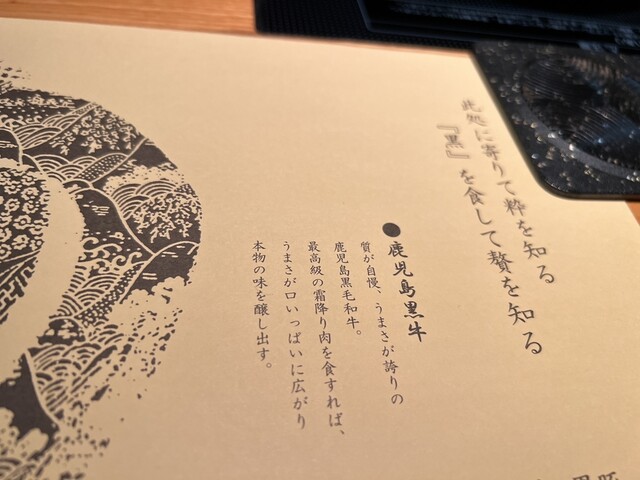 此処に寄りて粋を知る
『黒』を食して贅を知る
●鹿児島黒牛
質が自慢、うまさが誇りの
鹿児島黒毛和牛。
最高級の霜降り肉を食すれば、
うまさが口いっぱいに広がり
本物の味を醸し出す。